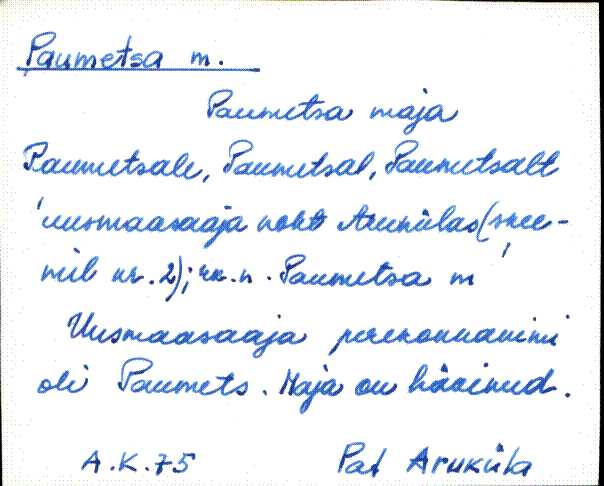 Paumetsa m.
Paumetsa maja
Paumetsale, Paumetsal, Paumetsalt
'uusmaasaaja koht Arukülas (skee-
mil nr. 2)'; rk.n. Paumetsa m
Uusmaasaaja perekonnanimi
oli Paumets. Maja on hävinud.
A.K.75 Pat Aruküla